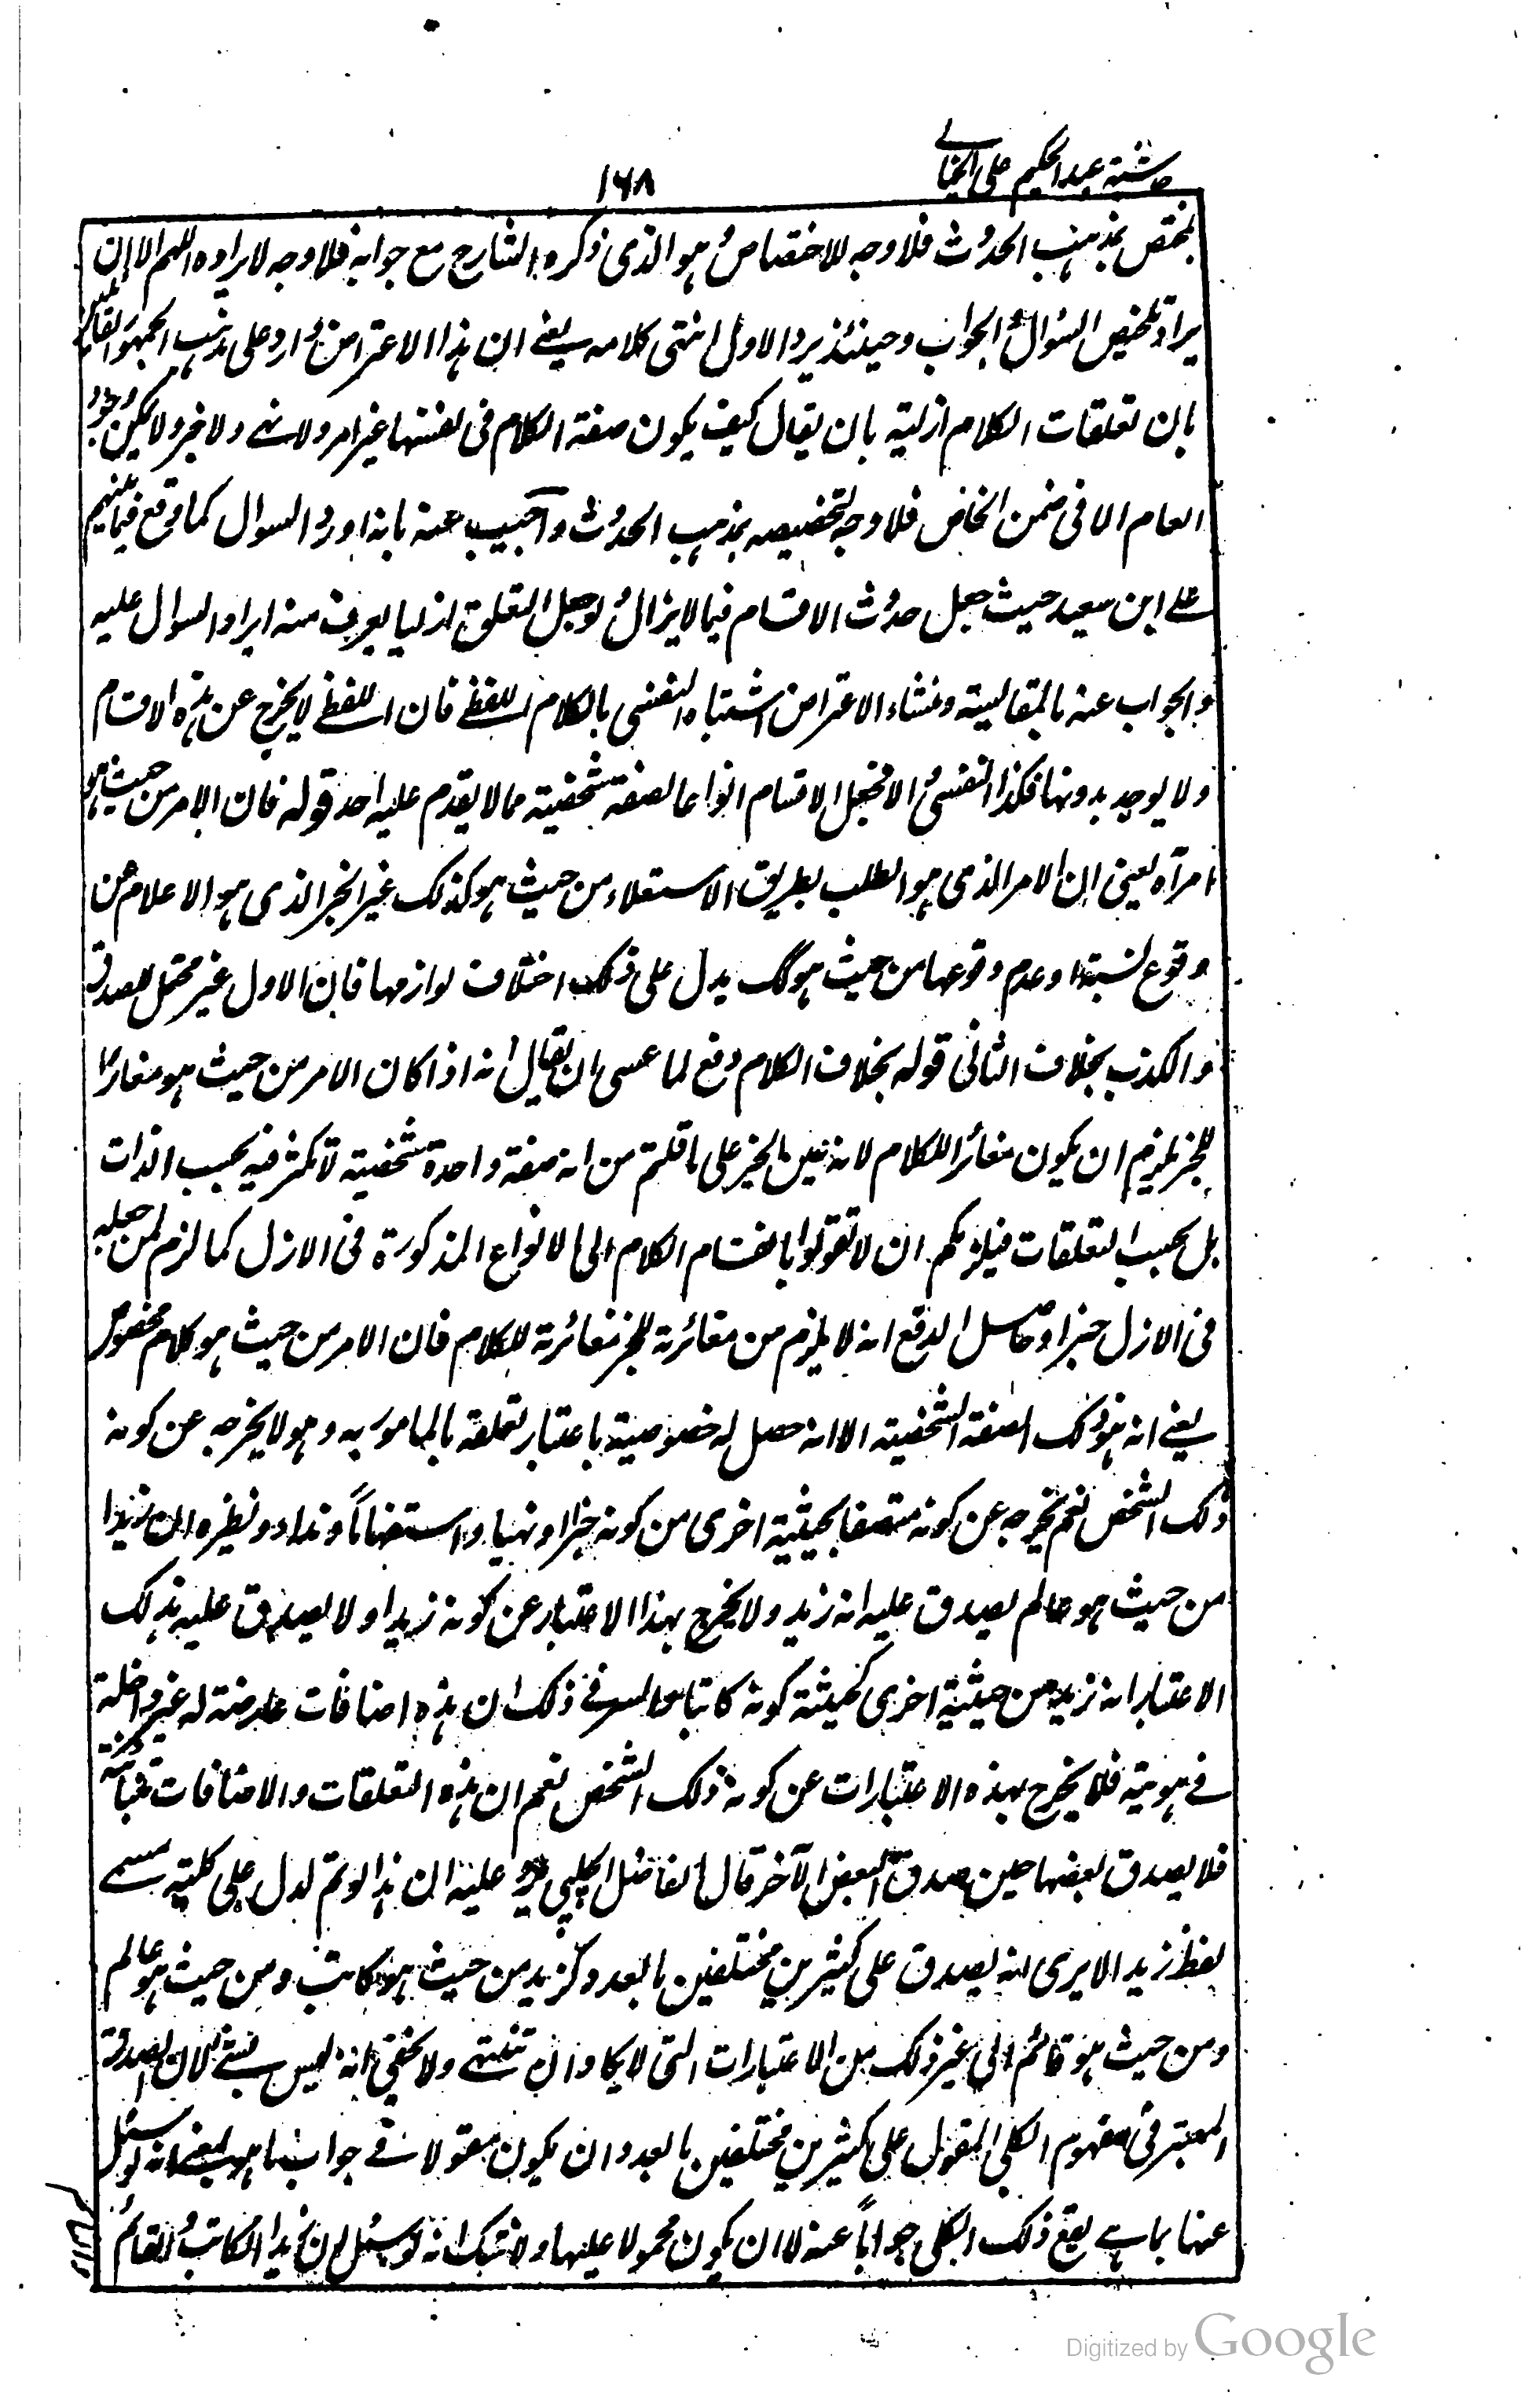 حاشیة عبد الحکیم علی الخیالی
۱۶۸
یختص بمذهب الحدوث فلا وجه للاختصاص هو الذی ذکره الشارح مع جوابه فلا وجه لایراده اللهم الا ان
یراد تلخیص السؤال والجواب وحینئذ یرد الاول انتهی کلامه یعنی ان هذا الاعتراض وارد علی مذهب الجمهور القائلین
بان تعلقات الکلام ازلیة بان یقال کیف یکون صفة الکلام فی نفسها غیر امر ولا نهی ولا خبر ولا یمکن وجود
العام الا فی ضمن الخاص فلا وجه لتخصیصه بمذهب الحدوث واجیب عنه بانه اورد السوال کما وقع فیما بینهم
علی ابن سعید حیث جعل حدوث الاقسام فیما لا یزال ولو جعل التعلق ازلیا یعرف منه ایراد السوال علیه
والجواب عنه بالمقایسة ومنشاء الاعتراض اشتباه النفسی بالکلام اللفظی فان اللفظی لا یخرج عن هذه الاقسام
ولا یوجد بدونها فکذا النفسی والا فجعل الاقسام انواعا لصفة شخصیة مما لا یقدم علیه احد قوله فان الامر من حیث هو
امر آه یعنی ان الامر الذی هو الطلب بطریق الاستعلاء من حیث هو کذلک غیر الخبر الذی هو الاعلام عن
وقوع نسبة او عدم وقوعها من حیث هو کک یدل علی ذلک اختلاف لوازمها فان الاول غیر محتمل للصدق
والکذب بخلاف الثانی قوله بخلاف الکلام دفع لما عسی ان یقال انه اذا کان الامر من حیث هو مغایرا
للخبر یلزم ان یکون مغائرا للکلام لانه عین الخبر علی ما قلتم من انه صفة واحدة شخصیة لا تکثر فیه بحسب الذات
بل بحسب التعلقات فیلزمکم ان لا تقولوا بانقسام الکلام الی الانواع المذکورة فی الازل کما لزم لمن جعله
فی الازل خبرا وحاصل الدفع انه لا یلزم من مغائرته للخبر مغائرته للکلام فان الامر من حیث هو کلام مخصوص
یعنی انه هو تلک الصفة الشخصیة الا انه حصل له خصوصیة باعتبار تعلقه بالمامور به وهو لا یخرجه عن کونه
ذلک الشخص نعم یخرجه عن کونه متصفا بحیثیة اخری من کونه خبرا او نهیا واستفهاماً ونداء ونظیره ان زیدا
من حیث هو عالم یصدق علیه انه زید ولا یخرج بهذا الاعتبار عن کونه زیدا ولا یصدق علیه بذلک
الاعتبار انه زید من حیثیة اخری کحیثیة کونه کاتبا والسر فی ذلک ان هذه اضافات عارضة له غیر داخلة
فی هویته فلا یخرج بهذه الاعتبارات عن کونه ذلک الشخص نعم ان هذه التعلقات والاضافات متباینة
فلا یصدق بعضها حین صدق البعض الآخر قال الفاضل الچلپی یرد علیه ان هذا لو تم لدل علی کلیة مسمی
لفظ زید الا یری انه یصدق علی کثیرین مختلفین بالعدد کزید من حیث هو کاتب ومن حیث هو عالم
ومن حیث هو قائم الی غیر ذلک من الاعتبارات التی لا یکاد ان تنتهی ولا یخفی انه لیس بشئ لان الصدق
المعتبر فی مفهوم الکلی المقول علی کثیرین مختلفین بالعدد ان یکون مقولا فی جواب ما هو یعنی انه لو سئل
عنها بما هی یقع ذلک الکلی جواباً عنه لا ان یکون محمولا علیها ولا شک انه لو سئل ان زیدا الکاتب والقائم